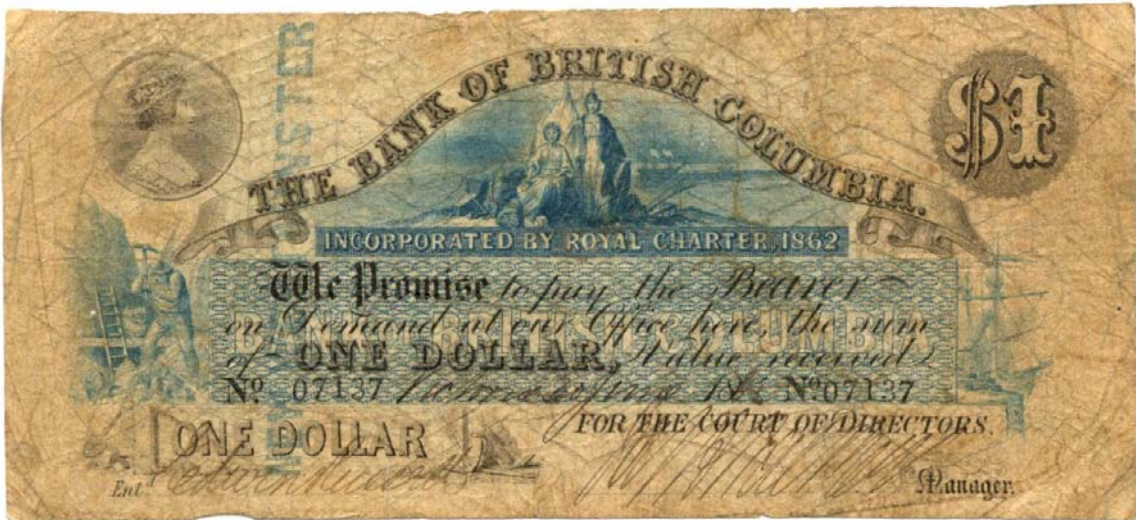 THE BANK OF BRITISH COLUMBIA.
$1
INCORPORATED BY ROYAL CHARTER, 1862
We Promise to pay the Bearer
on Demand at our Office here, the sum
of ONE DOLLAR, Value received
BANK OF BRITISH COLUMBIA
Nº 07137 18 Nº 07137
FOR THE COURT OF DIRECTORS.
ONE DOLLAR
Entd
Manager.